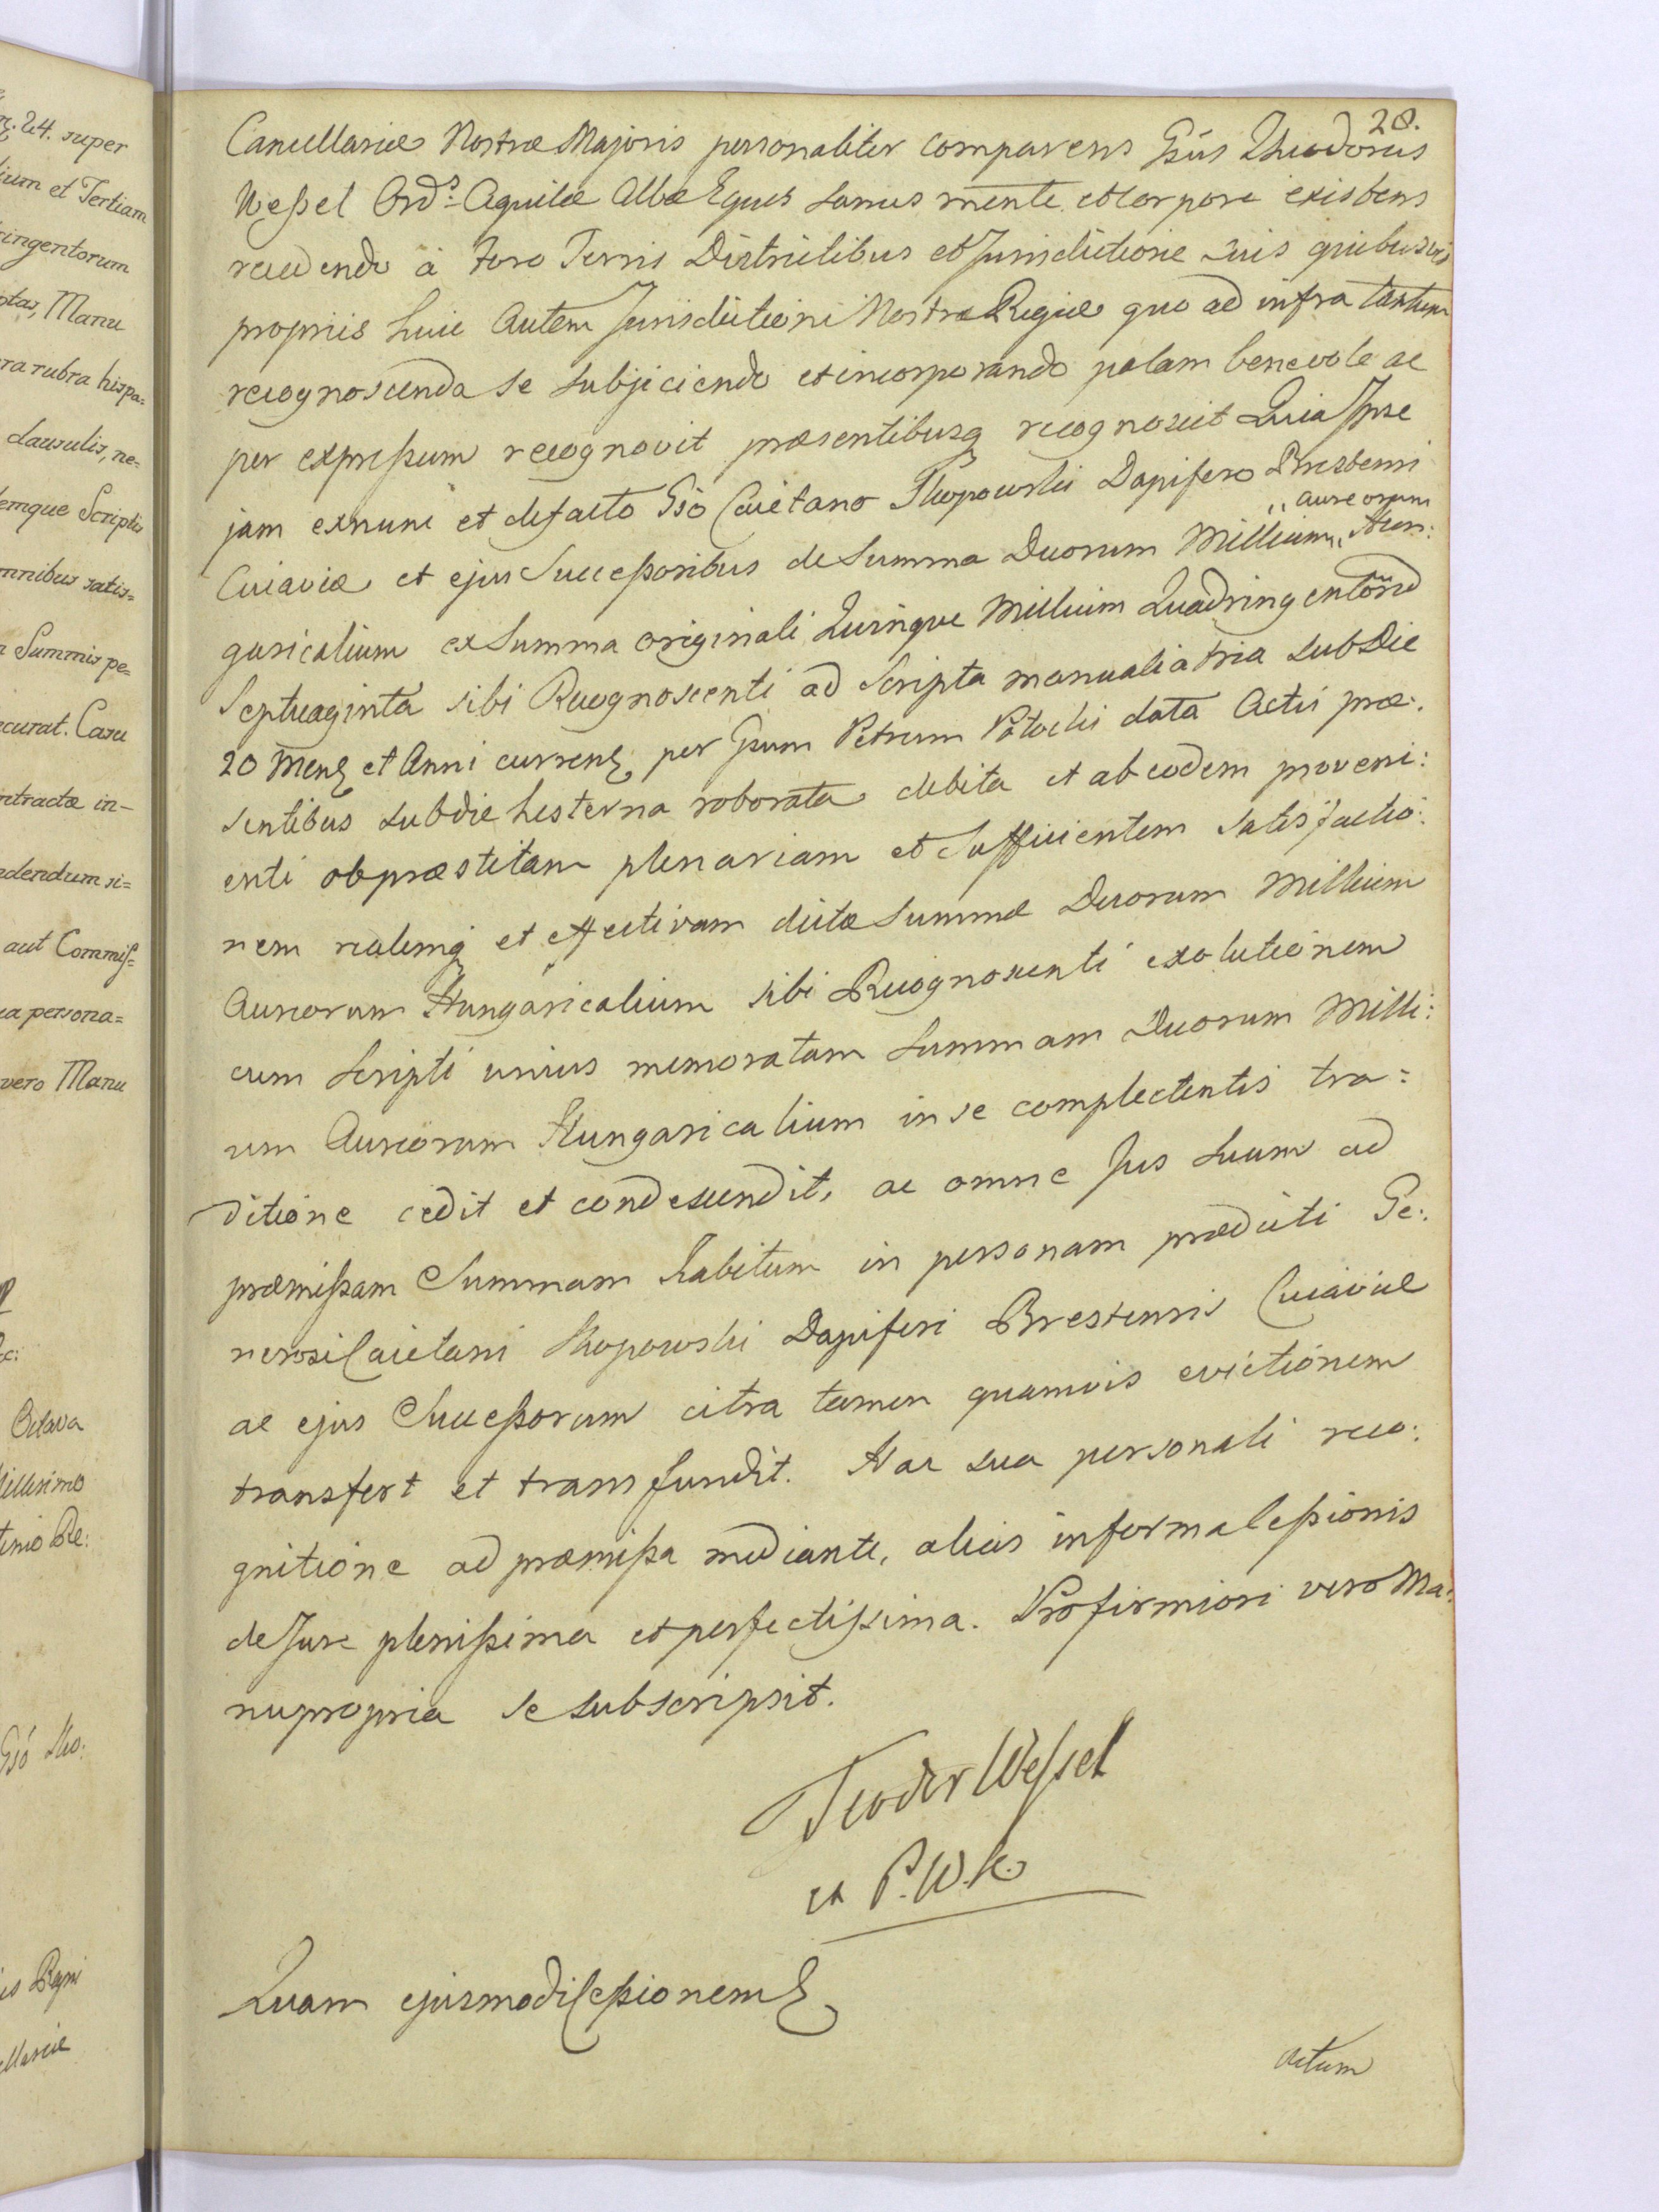 28.
Cancellariæ Nostræ Majoris personaliter comparens Gsus Theodorus
Weßel Ord̃s: Aquilæ Albæ Eques sanus mente et Corpore existens
recedendo à Foro Terris Districtibus et Jurisdictione suis quibusvis
propriis huic Autem Jurisdictioni Nostræ Regiæ quo ad infra tantum
recognoscenda se subjiciendo et incorporando palam benevole ac
per expreßum recognovit præsentibusq recognoscit Quia Ipse
jam exnunc et defacto Gso Caietano Skopowski Dapifero Brestensi
,, aureorum
Cuiaviæ et ejus Succeßoribus de Summa Duorum Millium ,, Hun:
garicalium ex Summa originali Quinque Millium Quadringentorũ
Septuaginta sibi Recognoscenti ad Scripta manualia tria sub Die
20 Mens et Anni currens per Gsum Petrum Potocki data Actis præ:
sentibus sub die hesterna roborata debita et ab eodem proveni:
enti ob præstitam plenariam et Sufficientem satisfactio:
nem realemq et effectivam dictæ Summæ Duorum Millium
Aureorum Hungaricalium sibi Recognoscenti exolutionem
cum Scripti unius memoratam Summam Duorum Milli:
um Aureorum Hungaricalium in se complectentis tra:
ditione cedit et condescendit, ac omne Jus suum ad
præmißam Summam habitum in personam prædicti Ge:
nerosi Caietani Skopowski Dapiferi Brestensis Cuiaviæ
ac ejus Succeßorum citra tamen quamvis evictionem
transfert et transfundit. Hac sua personali reco:
gnitione ad præmißa mediante, alias in forma Ceßionis
de Jure plenißima et perfectißima. Pro firmiori vero Ma:
nu propria se subscripsit.
Teodor Wessel
P.W.K.
Quam ejusmodi Ceßionem
Actum
n. 24. super
ium et Tertiam
ringentorum
otas, Manu
ra rubra hispa=
clausulis, ne=
demque Scriptis
mnibus satis=
Summis pe=
curat. Casu
ntractæ in-
ndendum si=
aut Commiß=
ea persona=
vero Manu
Octava
Millesimo
timo Re:
Gsó Sko:
is Regni
ellariæ